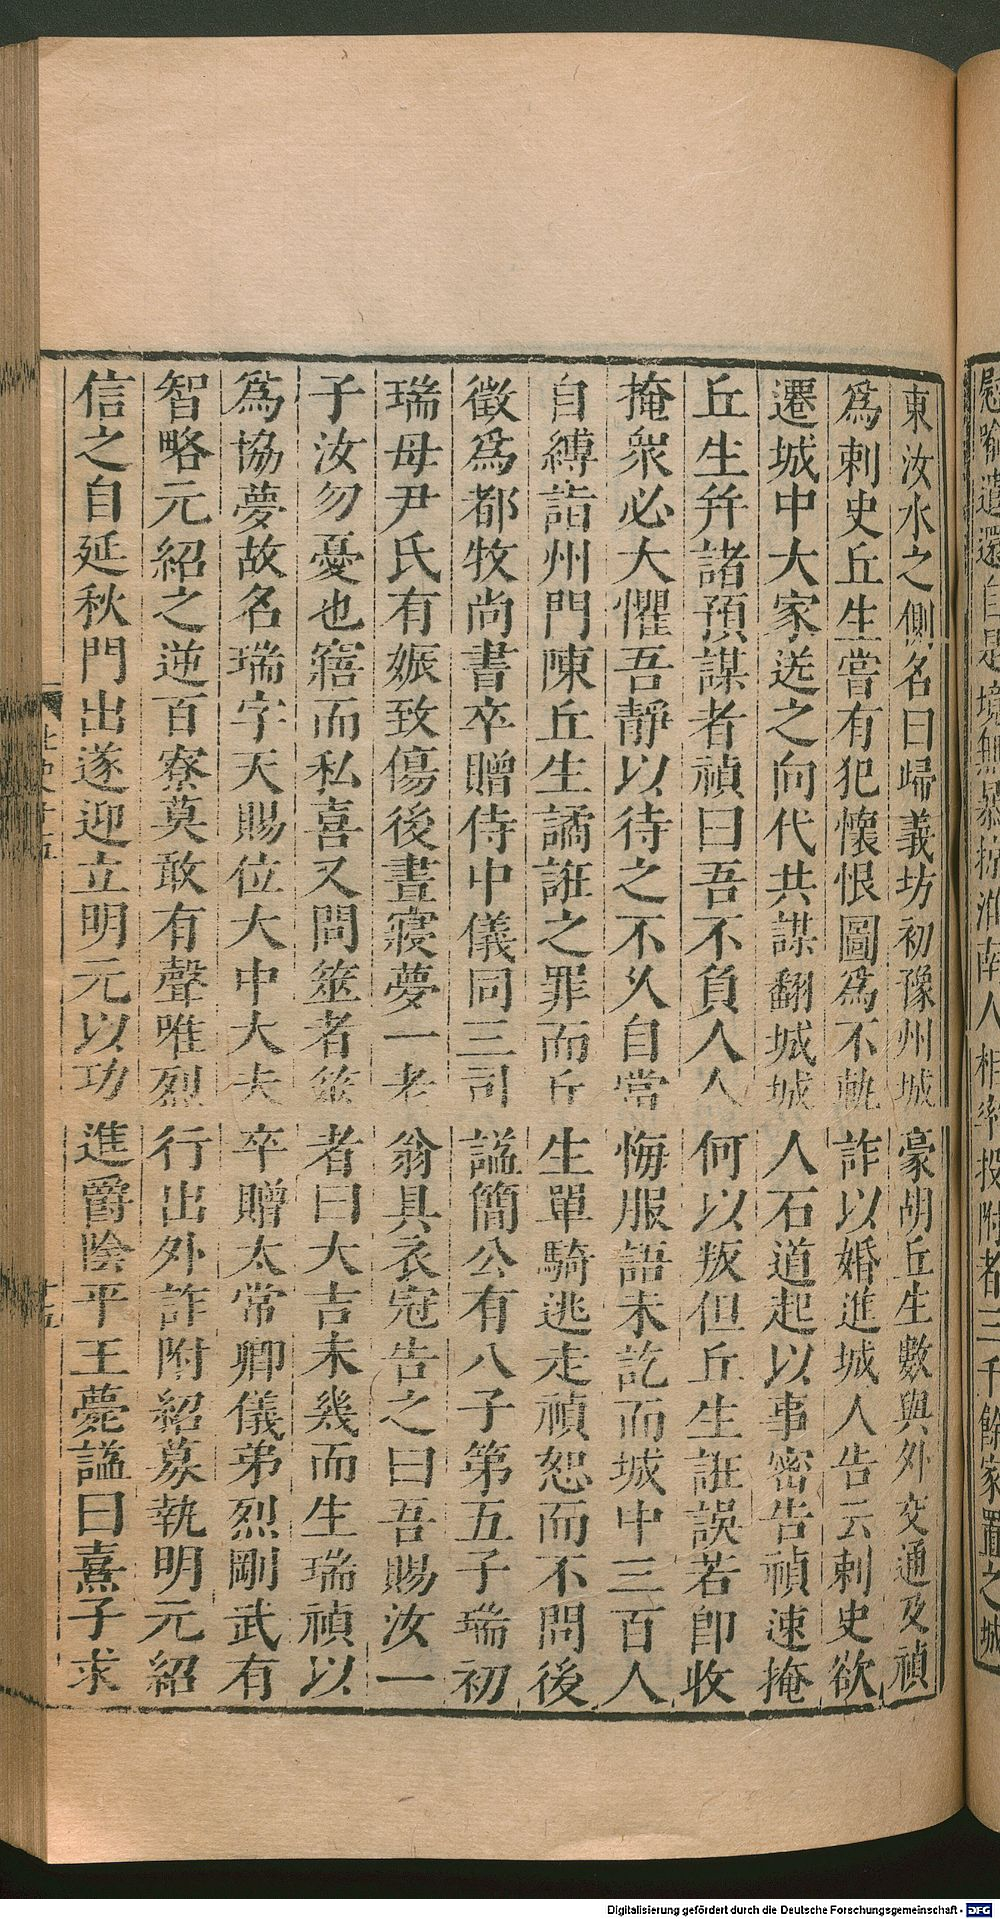 東汝水之側名曰歸義坊初豫州城豪胡丘生數與外交通及禎
爲刺史丘生嘗有犯懷恨圖爲不軌詐以婚進城人告云刺史欲
遷城中大家送之向代共謀翻城城人石道起以事密告禎速掩
丘生幷諸預謀者禎曰吾不負人人何以叛但丘生誑誤若卽收
掩衆必大懼吾靜以待之不久自當悔服語未訖而城中三百人
自縛詣州門陳丘生譎誑之罪而丘生單騎逃走禎恕而不問後
徵爲都牧尚書卒贈侍中儀同三司諡簡公有八子第五子瑞初
瑞母尹氏有娠致傷後晝寢夢一老翁具衣冠告之曰吾賜汝一
子汝勿憂也寤而私喜又問筮者筮者曰大吉未幾而生瑞禎以
爲協夢故名瑞字天賜位大中大夫卒贈太常卿儀弟烈剛武有
智略元紹之逆百寮莫敢有聲唯烈行出外詐附紹募執明元紹
信之自延秋門出遂迎立明元以功進爵陰平王薨諡曰熹子求
Digitalisierung gefördert durch die Deutsche Forschungsgemeinschaft - DFG